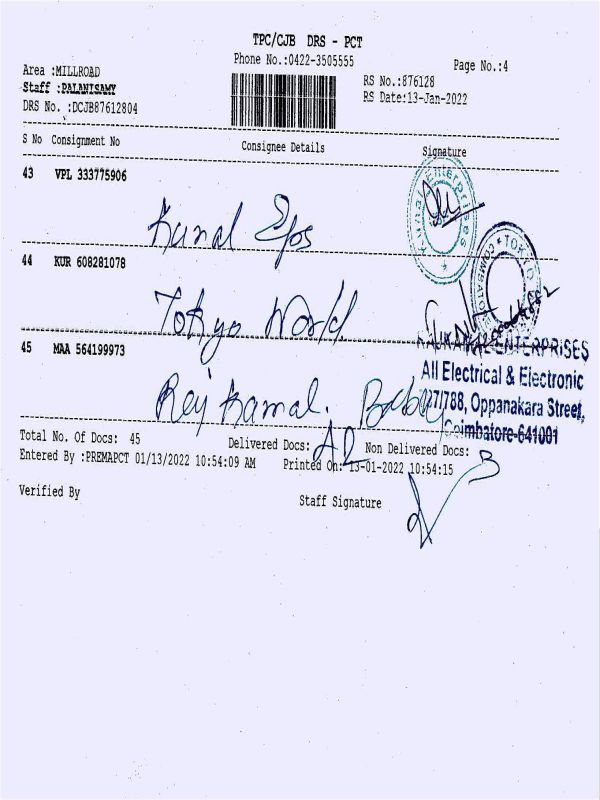 TPC/CJB DRS - PCT
Phone No.:0422-3505555
Page No.:4
Area :MILLROAD
Staff :PALANISAMY
DRS No. :DCJB87612804
RS No.:876128
RS Date:13-Jan-2022
S No Consignment No Consignee Details Signature
43 VPL 333775906
Kunal Epos
Kunal Enterprises
44 KUR 608281078
TOKYO
COIMBATORE
Tokyo World.
45 MAA 564199973
RAJKAMAL ENTERPRISES
All Electrical & Electronic
/788, Oppanakara Street,
Coimbatore-641001
Raj Kamal.
Total No. Of Docs: 45 Delivered Docs: 42 Non Delivered Docs: 3
Entered By :PREMAPCT 01/13/2022 10:54:09 AM Printed On: 13-01-2022 10:54:15
Verified By Staff Signature